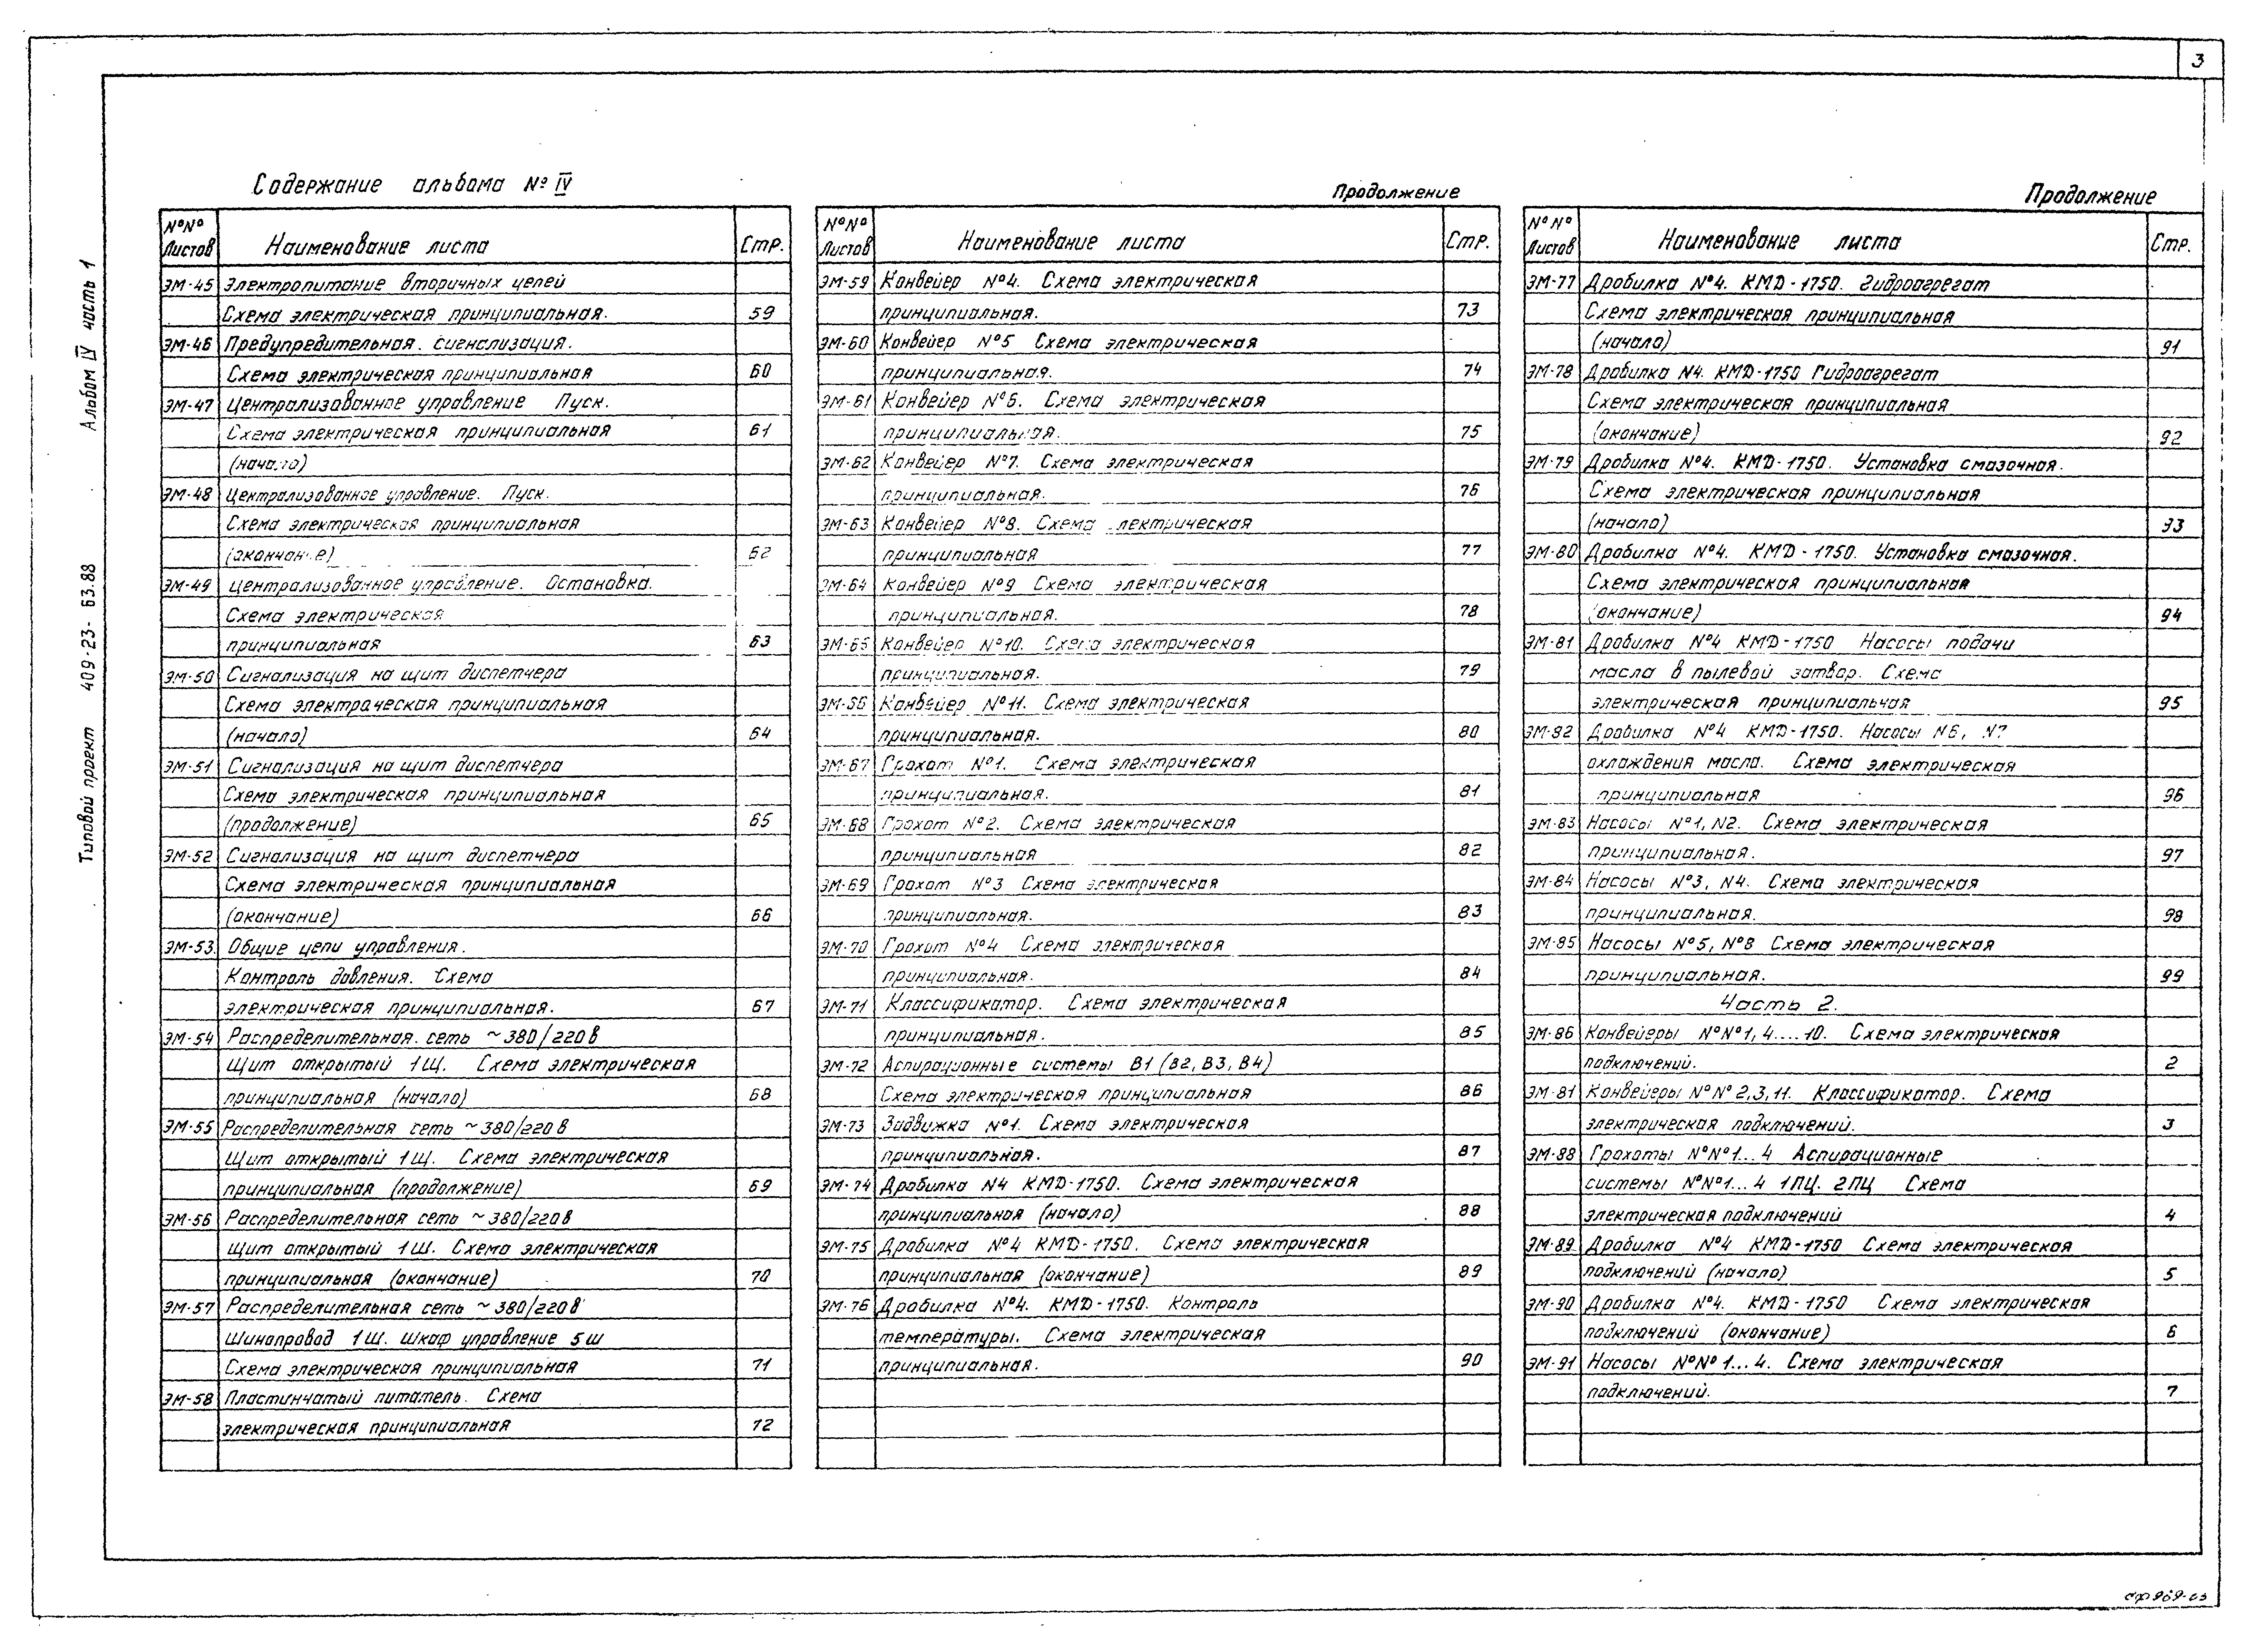 3
Содержание альбома № IV
№№ Листов Наименование листа Стр.
ЭМ-45 Электропитание вторичных цепей
Схема электрическая принципиальная. 59
ЭМ-46 Предупредительная. сигнализация.
Схема электрическая принципиальная 60
ЭМ-47 Централизованное управление Пуск.
Схема электрическая принципиальная 61
(начало)
ЭМ-48 Централизованное управление. Пуск.
Схема электрическая принципиальная
(окончание) 62
ЭМ-49 Централизованное управление. Остановка.
Схема электрическая
принципиальная 63
ЭМ-50 Сигнализация на щит диспетчера
Схема электрическая принципиальная
(начало) 64
ЭМ-51 Сигнализация на щит диспетчера
Схема электрическая принципиальная
(продолжение) 65
ЭМ-52 Сигнализация на щит диспетчера
Схема электрическая принципиальная
(окончание) 66
ЭМ-53. Общие цепи управления.
Контроль давления. Схема
электрическая принципиальная. 67
ЭМ-54 Распределительная. сеть ~380/220в
Щит открытый 1Щ. Схема электрическая
принципиальная (начало) 68
ЭМ-55 Распределительная сеть ~380/220в
Щит открытый 1Щ. Схема электрическая
принципиальная (продолжение) 69
ЭМ-56 Распределительная сеть ~380/220в
Щит открытый 1Ш. Схема электрическая
принципиальная (окончание) 70
ЭМ-57 Распределительная сеть ~380/220в
Шинопровод 1Ш. Шкаф управление 5ш
Схема электрическая принципиальная 71
ЭМ-58 Пластинчатый питатель. Схема
электрическая принципиальная 72
Продолжение
№№ Листов Наименование листа Стр.
ЭМ-59 Конвейер №4. Схема электрическая
принципиальная. 73
ЭМ-60 Конвейер №5 Схема электрическая
принципиальная. 74
ЭМ-61 Конвейер №6. Схема электрическая
принципиальная. 75
ЭМ-62 Конвейер №7. Схема электрическая
принципиальная. 76
ЭМ-63 Конвейер №8. Схема электрическая
принципиальная 77
ЭМ-64 Конвейер №9 Схема электрическая
принципиальная. 78
ЭМ-65 Конвейер №10. Схема электрическая
принципиальная. 79
ЭМ-66 Конвейер №11. Схема электрическая
принципиальная. 80
ЭМ-67 Грохот №1. Схема электрическая
принципиальная. 81
ЭМ-68 Грохот №2. Схема электрическая
принципиальная 82
ЭМ-69 Грохот №3 Схема электрическая
принципиальная. 83
ЭМ-70 Грохот №4 Схема электрическая
принципиальная. 84
ЭМ-71 Классификатор. Схема электрическая
принципиальная. 85
ЭМ-72 Аспирационные системы В1 (В2, В3, В4)
Схема электрическая принципиальная 86
ЭМ-73 Задвижка №1. Схема электрическая
принципиальная. 87
ЭМ-74 Дробилка N4 КМД-1750. Схема электрическая
принципиальная (начало) 88
ЭМ-75 Дробилка №4 КМД-1750. Схема электрическая
принципиальная (окончание) 89
ЭМ-76 Дробилка №4. КМД-1750. Контроль
температуры. Схема электрическая
принципиальная. 90
Продолжение
№№ Листов Наименование листа Стр.
ЭМ-77 Дробилка №4. КМД-1750. Гидроагрегат
Схема электрическая принципиальная
(начало) 91
ЭМ-78 Дробилка N4. КМД-1750 Гидроагрегат
Схема электрическая принципиальная
(окончание) 92
ЭМ-79 Дробилка №4. КМД-1750. Установка смазочная.
Схема электрическая принципиальная
(начало) 93
ЭМ-80 Дробилка №4. КМД-1750. Установка смазочная.
Схема электрическая принципиальная
(окончание) 94
ЭМ-81 Дробилка №4 КМД-1750 Насосы подачи
масла в пылевой затвор. Схема
электрическая принципиальная 95
ЭМ-82 Дробилка №4 КМД-1750. Насосы N6, N7
охлаждения масла. Схема электрическая
принципиальная 96
ЭМ-83 Насосы №1, N2. Схема электрическая
принципиальная. 97
ЭМ-84 Насосы №3, N4. Схема электрическая
принципиальная. 98
ЭМ-85 Насосы №5, №8 Схема электрическая
принципиальная. 99
Часть 2.
ЭМ-86 Конвейеры №№1, 4....10. Схема электрическая
подключений. 2
ЭМ-81 Конвейеры №№ 2,3,11. Классификатор. Схема
электрическая подключений. 3
ЭМ-88 Грохоты №№1...4 Аспирационные
системы №№1...4 1ПЦ. 2ПЦ Схема
электрическая подключений 4
ЭМ-89. Дробилка №4 КМД-1750 Схема электрическая
подключений (начало) 5
ЭМ-90 Дробилка №4. КМД-1750 Схема электрическая
подключений (окончание) 6
ЭМ-91 Насосы №№ 1...4. Схема электрическая
подключений. 7
Типовой проект 409-23-63.88 Альбом IV часть 1
сф969-03